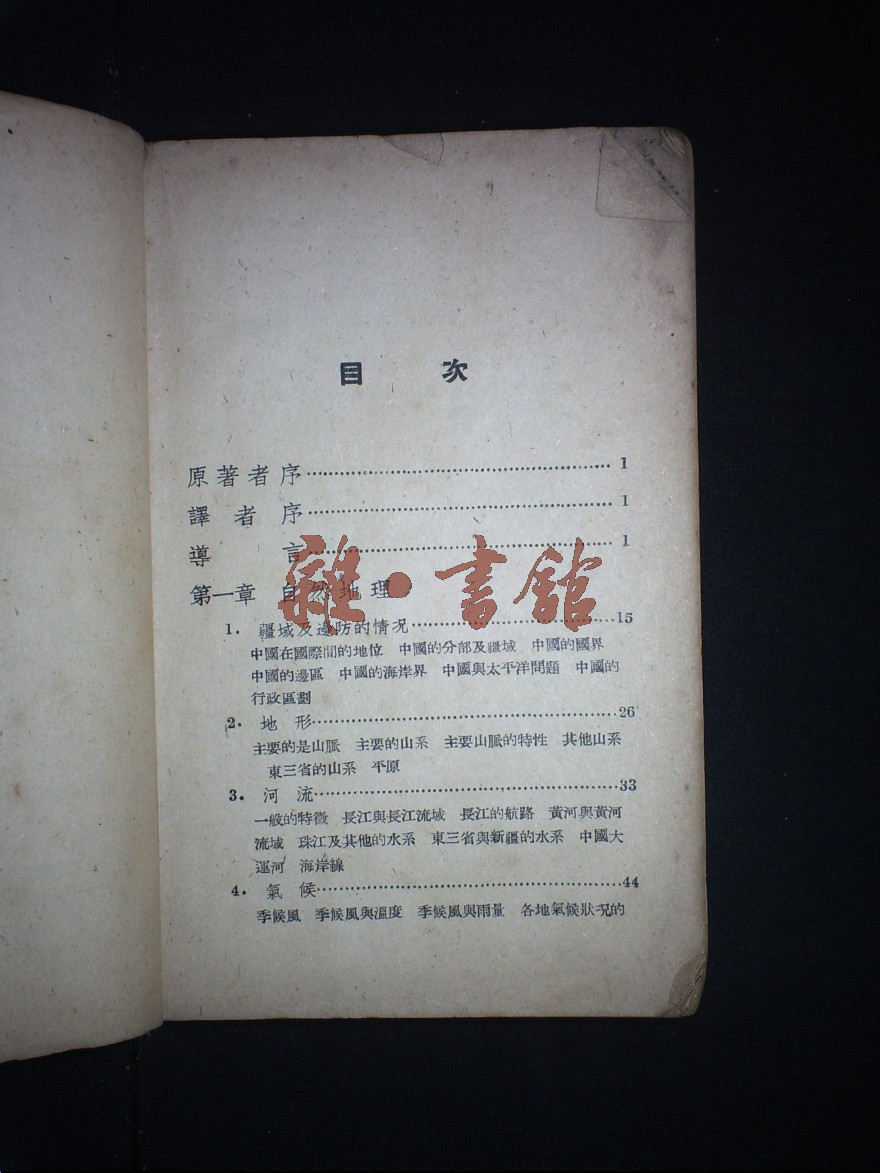 目 次
原著者序…………………………………… 1
譯者序…………………………………… 1
導言…………………………………… 1
第一章 自然地理
1. 疆域及邊防的情況……………………15
中國在國際間的地位 中國的分部及疆域 中國的國界
中國的邊區 中國的海岸界 中國與太平洋問題 中國的
行政區劃
2. 地形……………………………………26
主要的是山脈 主要的山系 主要山脈的特性 其他山系
東三省的山系 平原
3. 河流……………………………………33
一般的特徵 長江與長江流域 長江的航路 黃河與黃河
流域 珠江及其他的水系 東三省與新疆的水系 中國大
運河 海岸線
4. 氣候……………………………………44
季候風 季候風與溫度 季候風與雨量 各地氣候狀況的
雜·書館